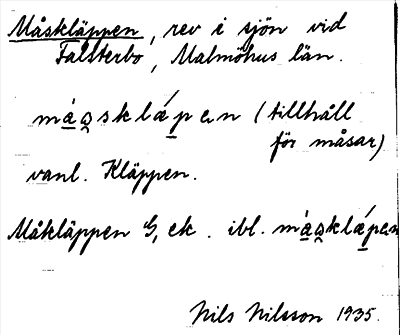 Måskläppen, rev i sjön vid
Falsterbo, Malmöhus län.
má̱o̭sklǽp̱en (tillhåll
för måsar)
vanl. Kläppen.
Måkläppen G, ek. ibl. má̱o̭sklǽp̱en
Nils Nilsson 1935.